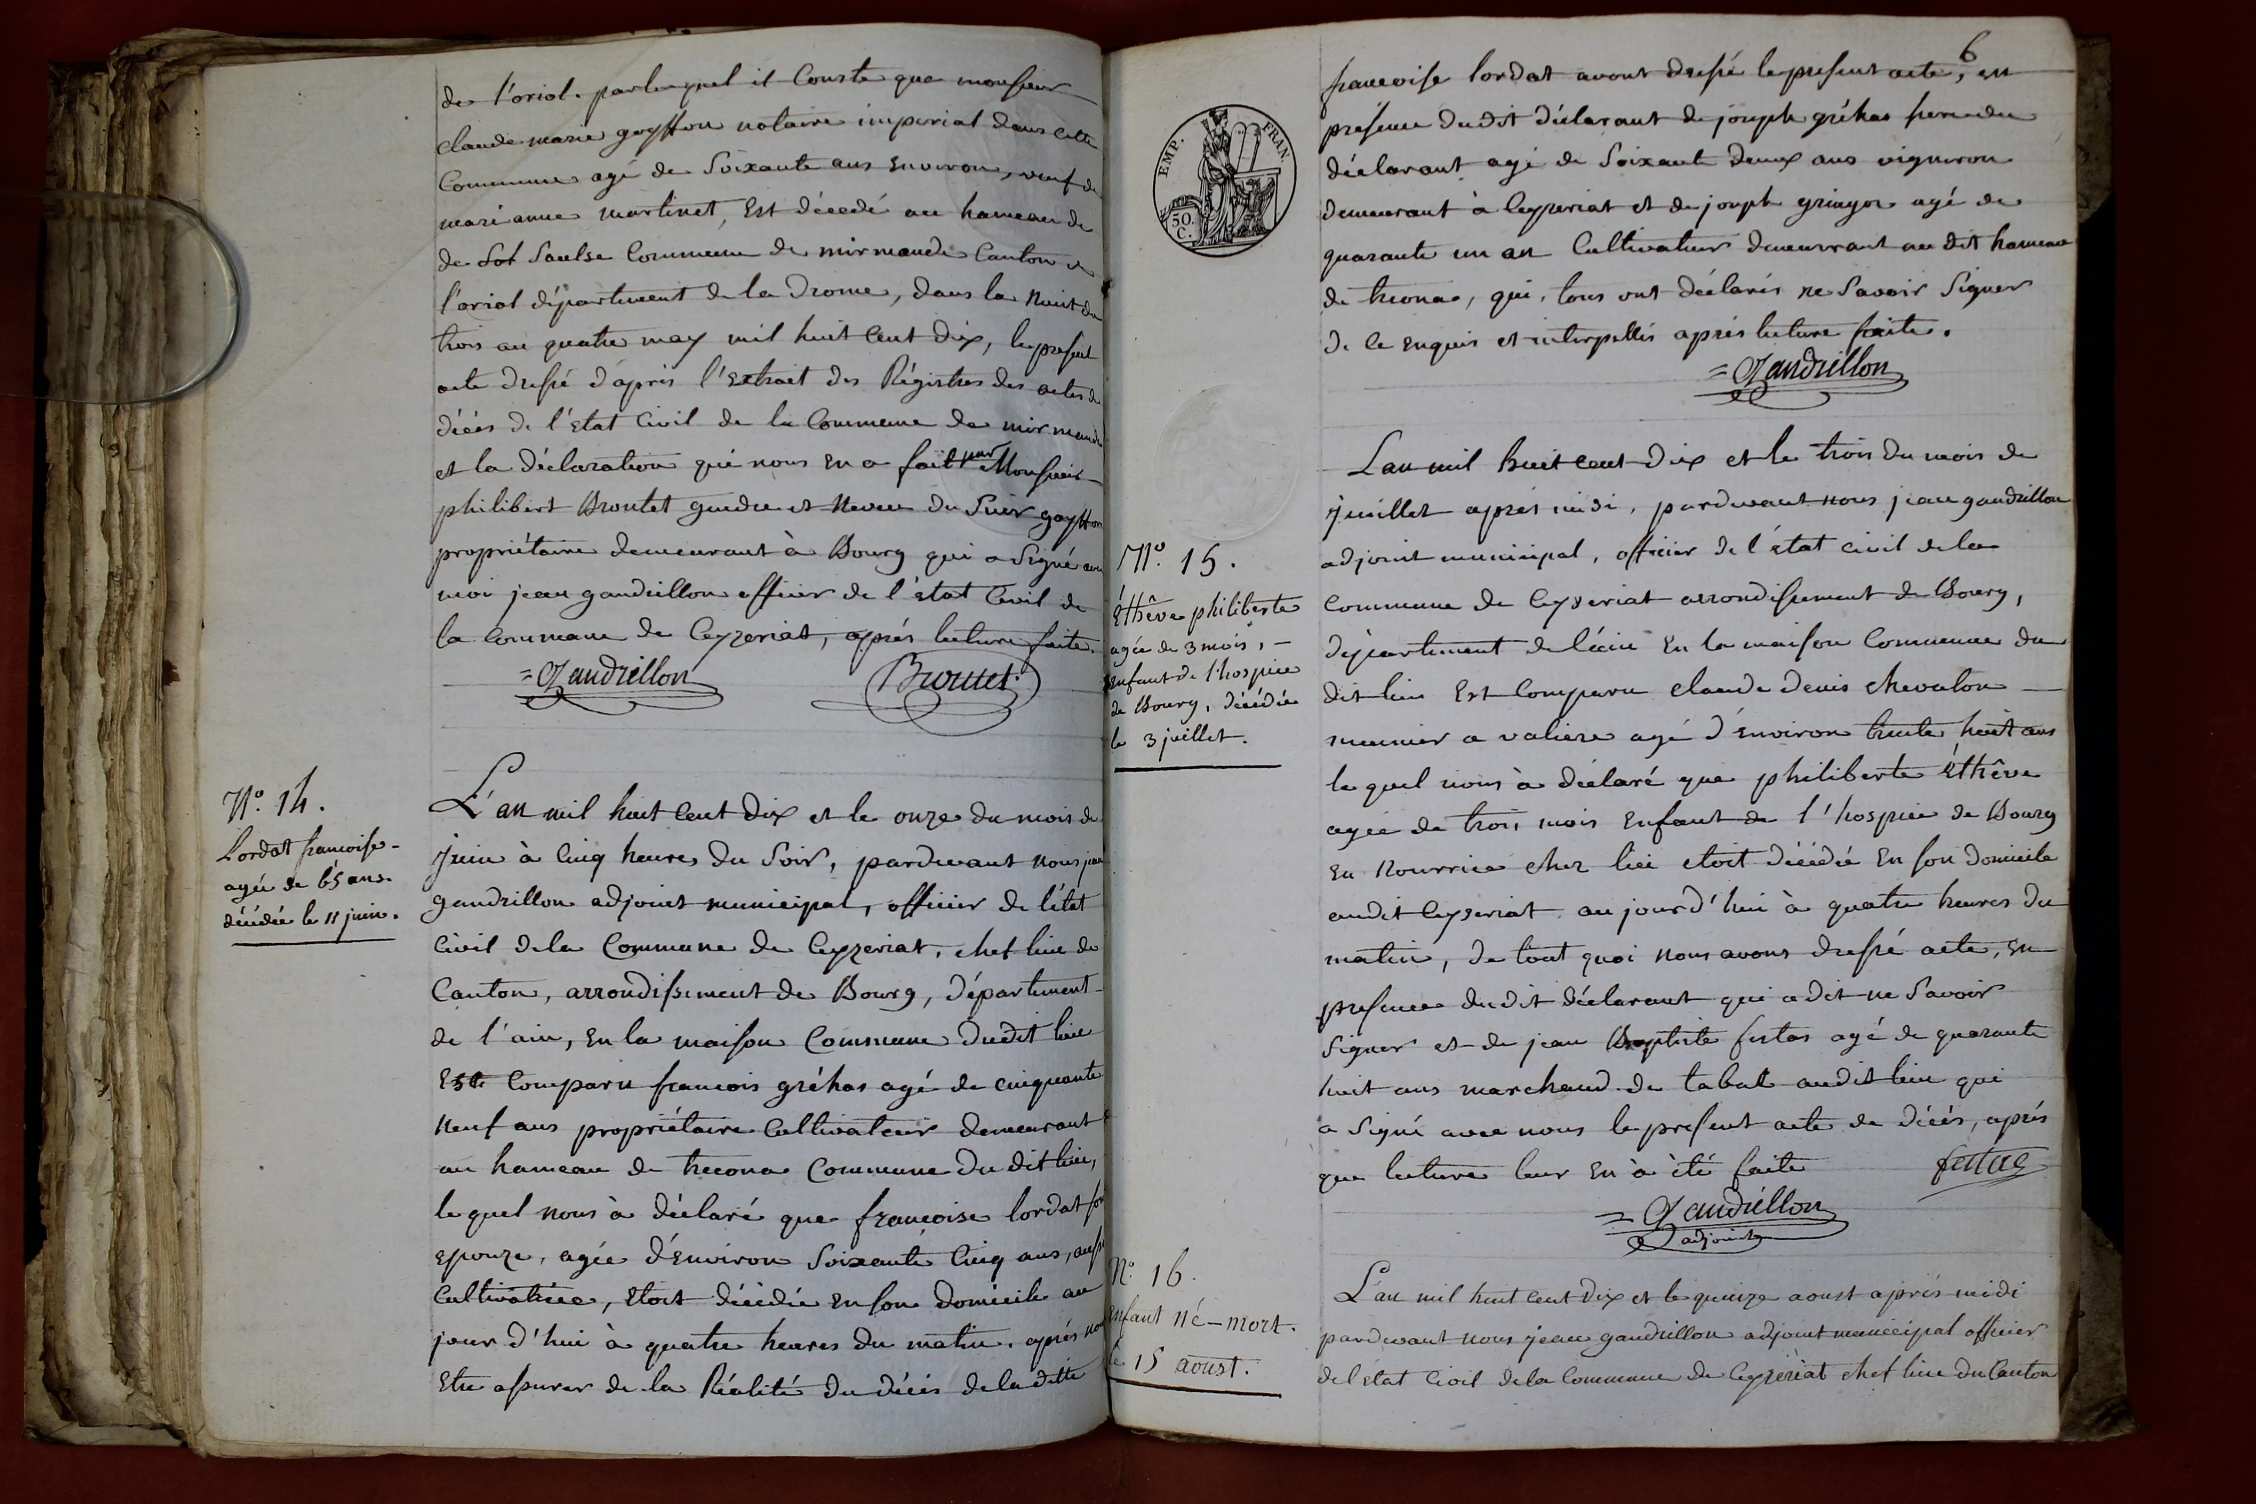 de l'oriol. par lequel il Conste que monsieur
claude marie goyffon notaire imperial dans cette
Commune agé de Soixante ans environ, veuf de
marianne martinet, Est décedé au hameau de
de Sol Saulse Commune de mirmande Canton de
l'oriol département de la Drome, dans la Nuit du
trois au quatre may mil huit Cent dix, le present
acte dressé d'après l'Extrait des Régistres des actes de
décés de l'Etat Civil de la Commune de mirmande
et la déclaration qui nous en a fait Monsieur
philibert Broutet gendre et Neveu du Sieur goyffon
propriétaire demeurant à Bourg qui a Signé avec
moi jean gandrillon officier de l'état Civil de
la Commune de Ceyzeriat, après lecture faite.
=Gandrillon Broutet
N.º 14.
Lordat francoise
agée de 65 ans.
décédée le 11 juin.
L'an mil huit Cent dix et le onze du mois de
Juin à Cinq heures du Soir, pardevant nous jean
gandrillon adjoint municipal, officier de l'état
Civil de la Commune de Ceyzeriat, chef lieu de
Canton, arrondissement de Bourg, département
de l'ain, en la maison Commune dudit lieu
Est Comparu francois gréhas agé de cinquante
Neuf ans propriétaire Cultivateur demeurant
au hameau de trecona Commune du dit lieu,
lequel nous à déclaré que francoise lordat son
epouze, agée d'environ Soixante Cinq ans, aussi
Cultivatrice, Etoit décédée en son domicile au
jour d'hui à quatre heures du matin. après nous
Etre assurer de la Réalité du décés de la ditte
6
EMP. FRAN.
50.
C.
francoise lordat avont dressé le present acte, en
présence dudit déclarant de joseph gréhas du
déclarant agé de Soixante deux ans vigneron
demeurant à Ceyzeriat et de joseph gringoz agé de
quarante un an Cultivateur demeurant au dit hameau
de trecona, qui, tous ont déclarés ne Savoir Signer
de ce enquis et interpellés après lecture faite.
=Gandrillon
N.º 15.
Éthêve philiberte
agée de 3 mois,
enfant de l'hospice
de Bourg, décédée
le 3 juillet.
L'an mil huit cent dix et le trois du mois de
Juillet après midi, pardevant nous jean gandrillon
adjoint municipal, officier de l'état civil de la
Commune de Ceyzeriat arrondissement de Bourg,
département de l'ain En la maison Commune du
dit lieu Est Comparu claude denis chevalon
meunier a valiere agé d'environ trente huit ans
lequel nous à déclaré que philiberte Éthêve
agée de trois mois Enfant de l'hospice de Bourg
en Nourrice chez lui etoit décédée En son domicile
audit Ceyzeriat aujourd'hui à quatre heures du
matin, de tout quoi nous avons dressé acte, en
presence dudit déclarant qui a dit ne Savoir
Signer et de jean Baptiste festas agé de quarante
huit ans marchand de tabat audit lieu qui
a Signé avec nous le present acte de décés, après
que lecture leur en à été faite festas
=Gandrillon
adjoint
N.º 16.
Enfant né-mort.
le 15 aoust.
L'an mil huit cent dix et le quinze aoust après midi
pardevant nous jean gandrillon adjoint municipal officier
de l'état Civil de la Commune de Ceyzériat chef lieu du Canton